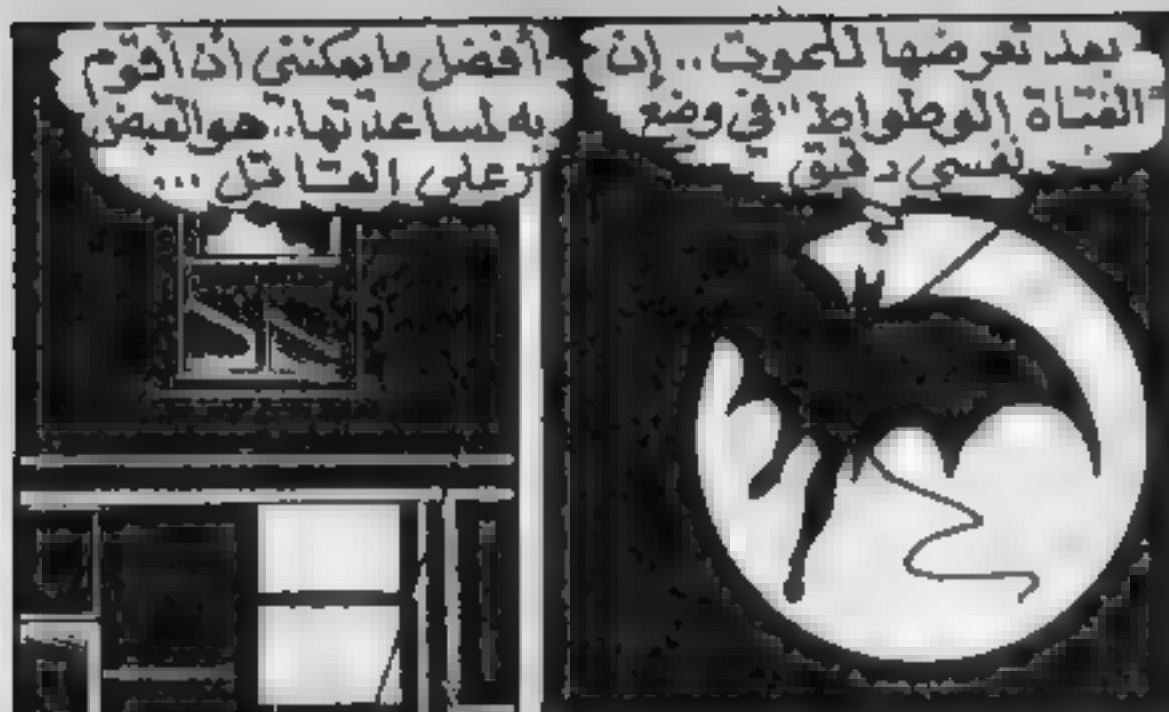 بعد تعرضها للموت.. إن
"الفتاة الوطواط" في وضع
نفسي دقيق
أفضل ما يمكنني أن أقوم
به لمساعدتها.. هو القبض
على القاتل ...